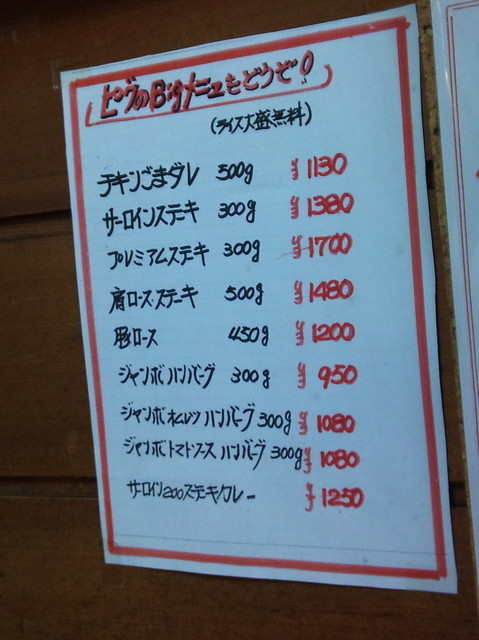 ピヴのBigメニューをどうぞ!
(ライス大盛無料)
チキンごまダレ 500g ¥1130
サーロインステーキ 300g ¥1380
プレミアムステーキ 300g ¥1700
肩ロースステーキ 500g ¥1480
豚ロース 450g ¥1200
ジャンボハンバーグ 300g ¥950
ジャンボオムレツハンバーグ 300g ¥1080
ジャンボトマトソースハンバーグ 300g ¥1080
サーロイン200ステーキカレー ¥1250